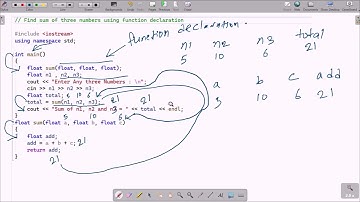 // Find sum of three numbers using function declaration
function declaration.
#include <iostream>
using namespace std;
n1 n2 n3 total
5 10 6 21
int main()
{
float sum(float, float, float);
float n1, n2, n3;
cout << "Enter Any three Numbers : \n";
cin >> n1 >> n2 >> n3;
float total; 5 10 6
total = sum(n1, n2, n3); 21 21
cout << "Sum of n1, n2 and n3 = " << total << endl;
}
a b c add
5 10 6 21
5 10 6
float sum(float a, float b, float c)
{
float add;
add = a + b + c; 21
return add;
}
21